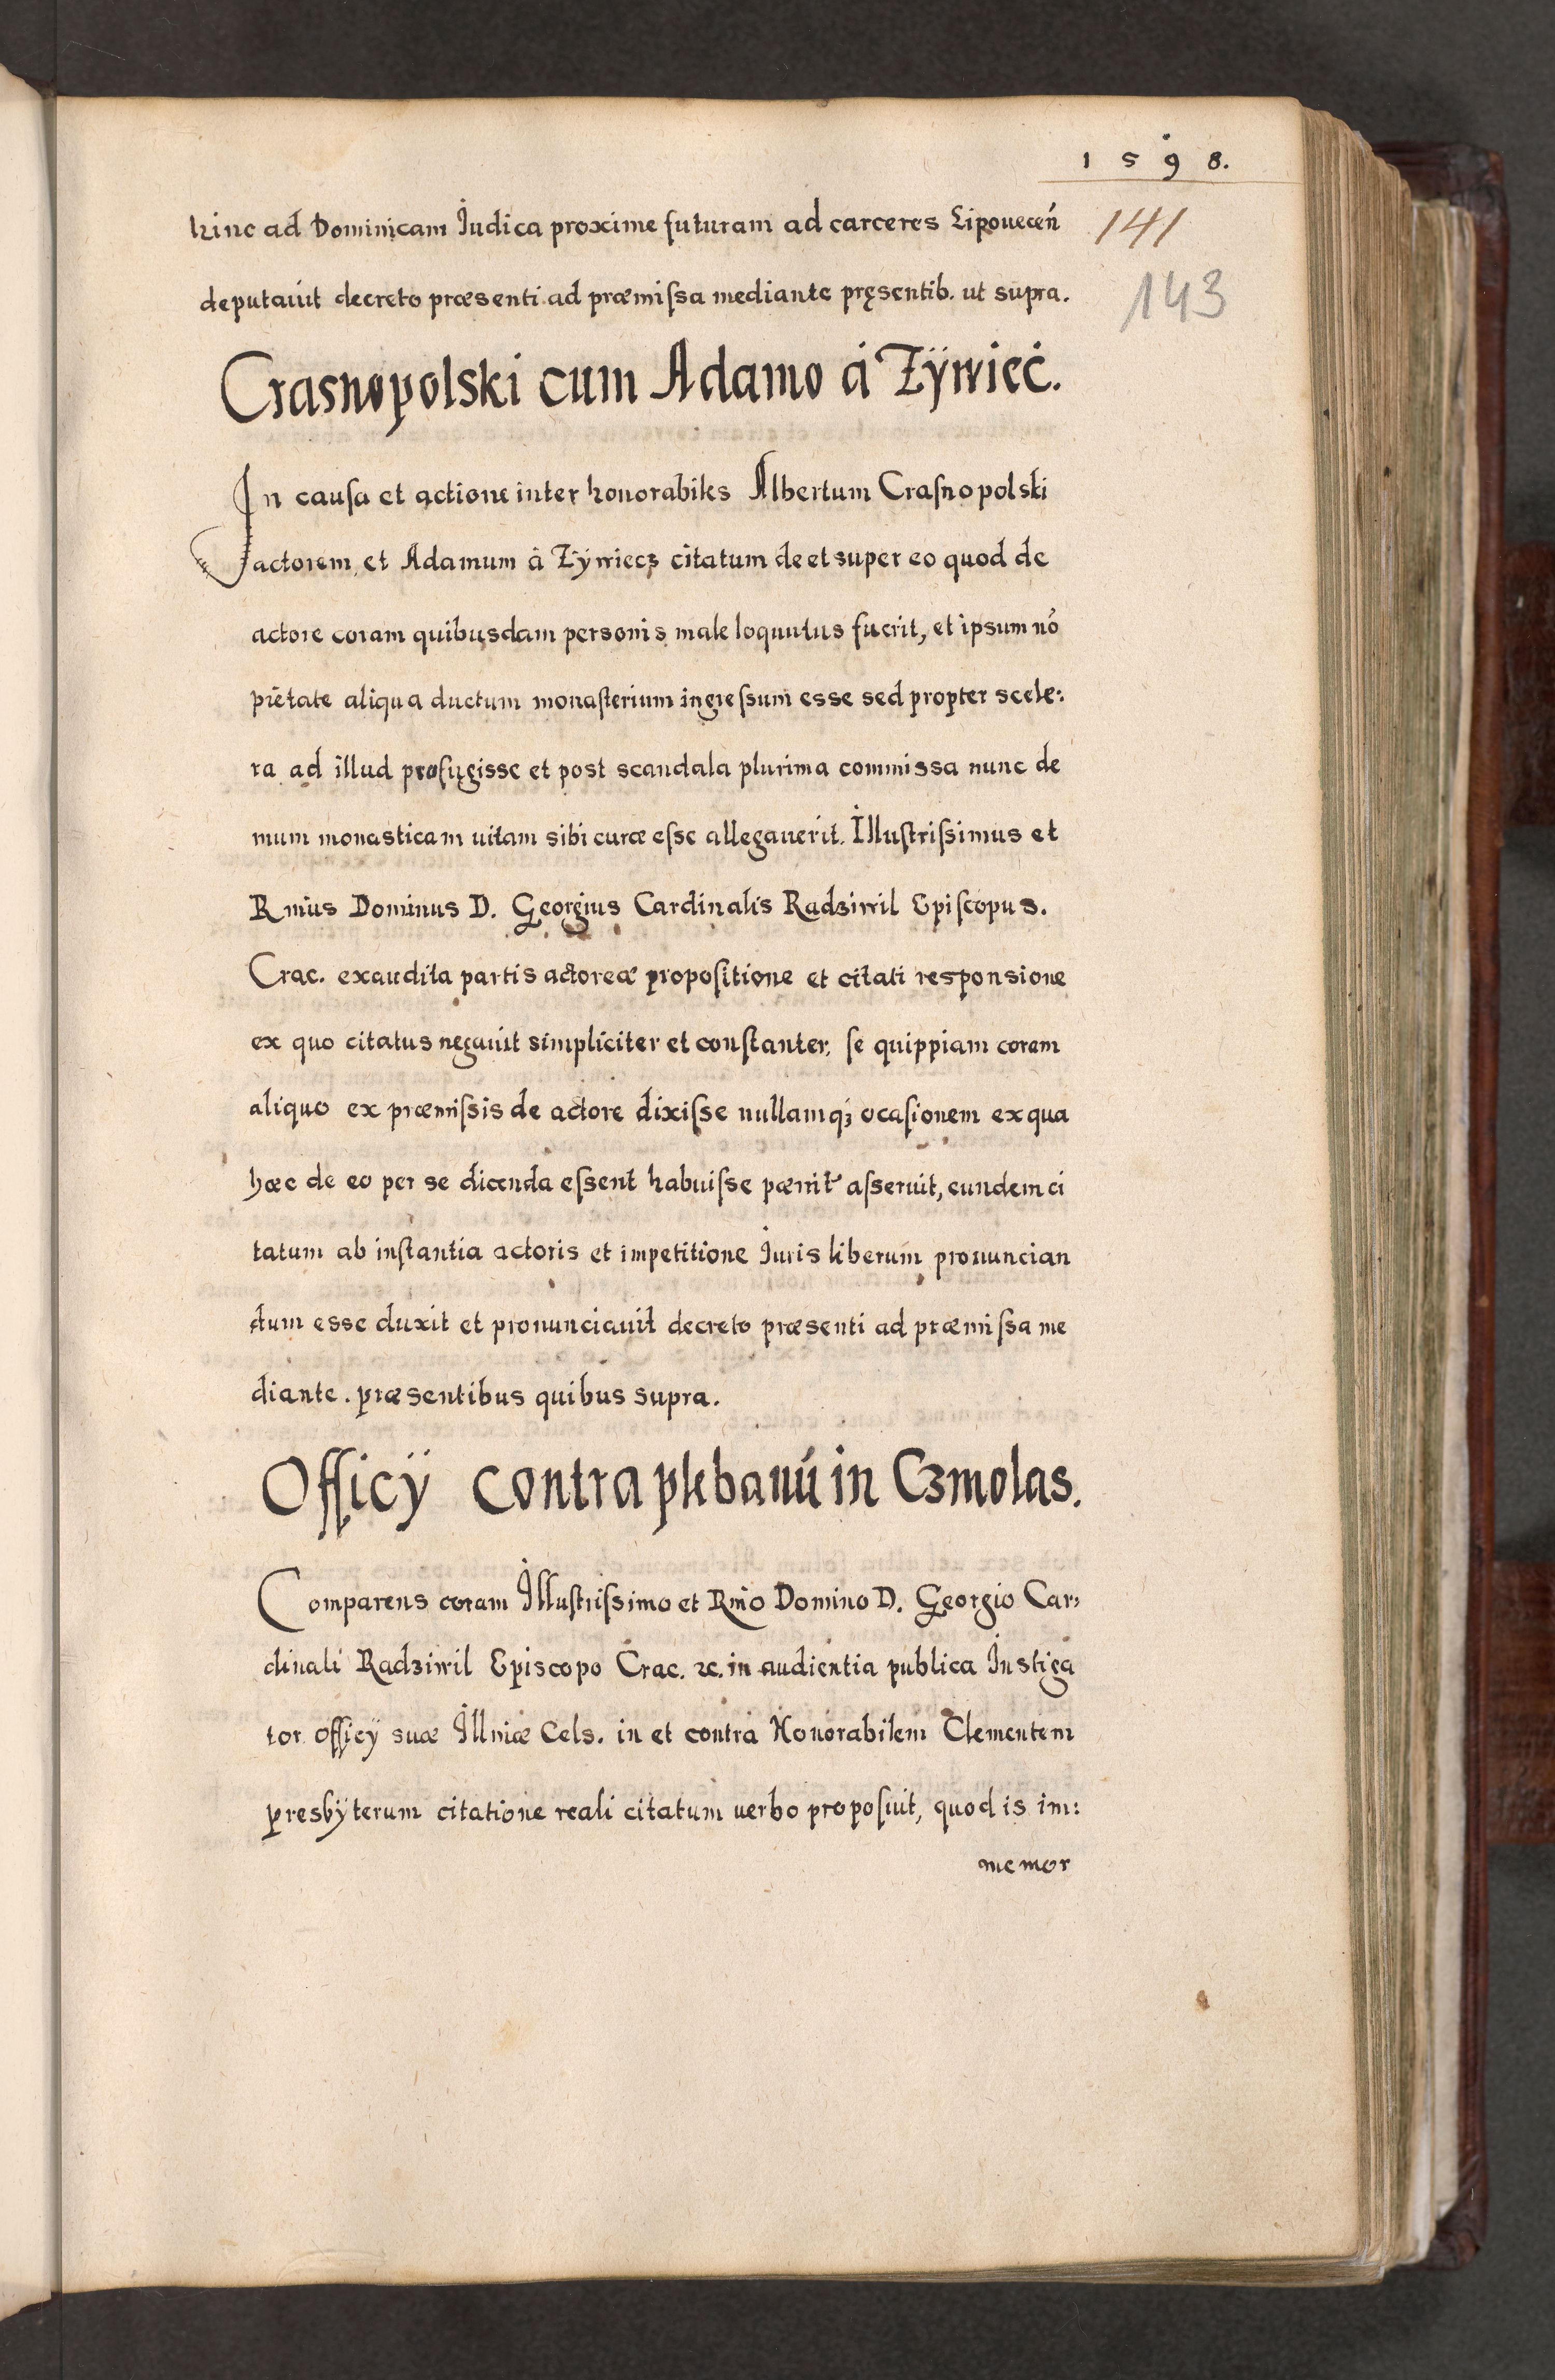 1598.
hinc ad Dominicam Iudica proxime futuram ad carceres Lipouecen̄
141
deputauit decreto præsenti ad præmiſsa mediante pręsentib. ut supra.
143
Crasnopolski cum Adamo à Zÿwieć.
In cauſa et actione inter honorabiles Albertum Craſnopolski
actorem et Adamum à Zÿwiecz citatum de et super eo quod de
actore coram quibusdam personis male loquutus fuerit, et ipsum nō
pietate aliqua ductum monaſterium ingreſsum esse sed propter scele:
ra ad illud profugisse et post scandala plurima commissa nunc de
mum monasticam uitam sibi curæ eſse allegauerit. Illuſtriſsimus et
Rmus Dominus D. Georgius Cardinalis Radziwil Epiſcopus.
Crac. exaudita partis actoreæ propoſitione et citati responsione
ex quo citatus negauit simpliciter et conſtanter, ſe quippiam coram
aliquo ex præmiſsis de actore dixiſse nullamqꝫ ocaſionem ex qua
hæc de eo per se dicenda eſsent habuiſse pænit. aſseruit, eundem ci
tatum ab inſtantia actoris et impetitione Iuris liberum pronuncian
dum esse duxit et pronunciauit decreto præsenti ad præmiſsa me
diante. præsentibus quibus supra.
Officÿ contra plebanū in Czmolas.
Comparens coram Illuſtriſsimo et Rmo Domino D. Georgio Car:
dinali Radziwil Episcopo Crac. ꝛc. in audientia publica Instiga
tor officÿ suæ Illmæ Cels. in et contra Honorabilem Clementem
presbÿterum citatione reali citatum uerbo propoſuit, quod is im:
memor